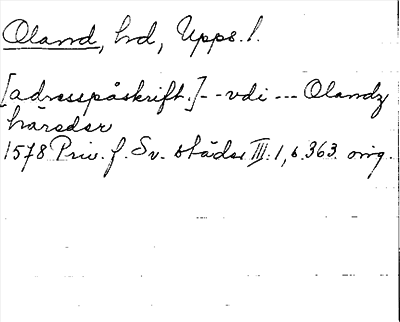 Oland, hd, Upps. l.
[adresspåskrift.] -- vdi --- Olandz
häreder
1578 Priv. f. Sv. städer III: 1, s. 363. orig.